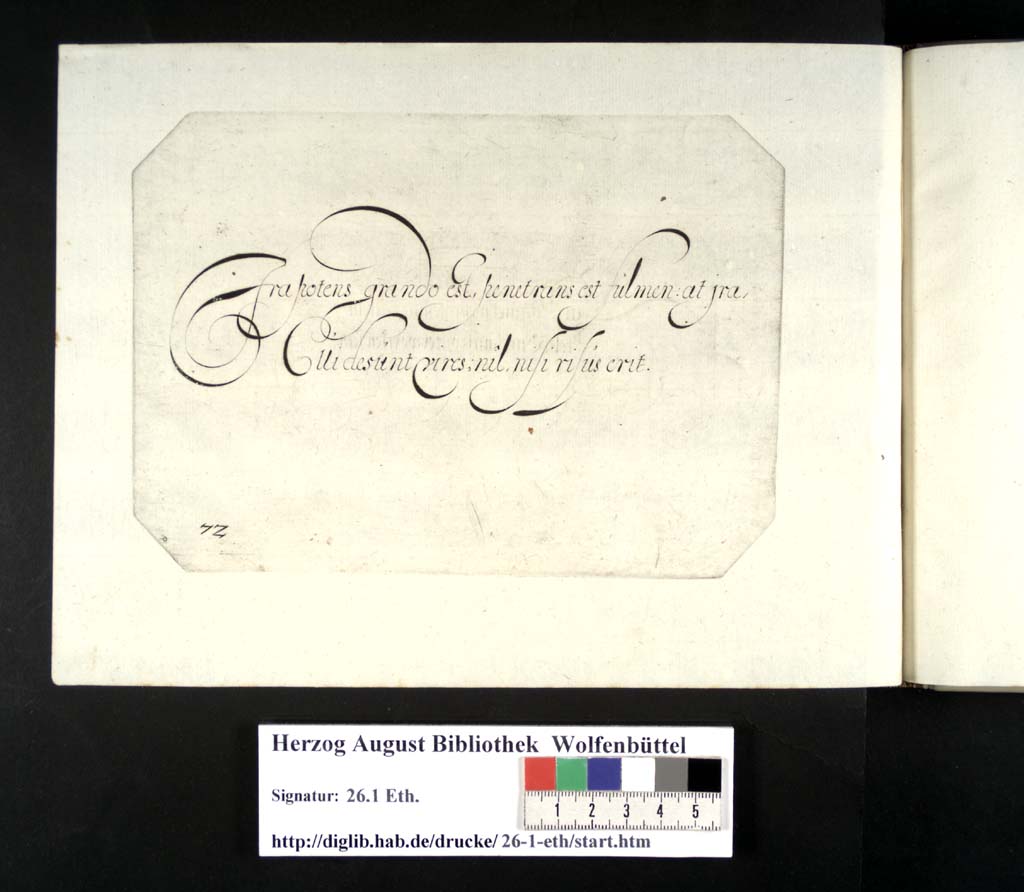 Ira potens grando est, penetrans est fulmen: at jra,
Illi desunt vires; nil, nisi risus erit.
72
Herzog August Bibliothek Wolfenbüttel
Signatur: 26.1 Eth.
1 2 3 4 5
http://diglib.hab.de/drucke/ 26-1-eth/start.htm